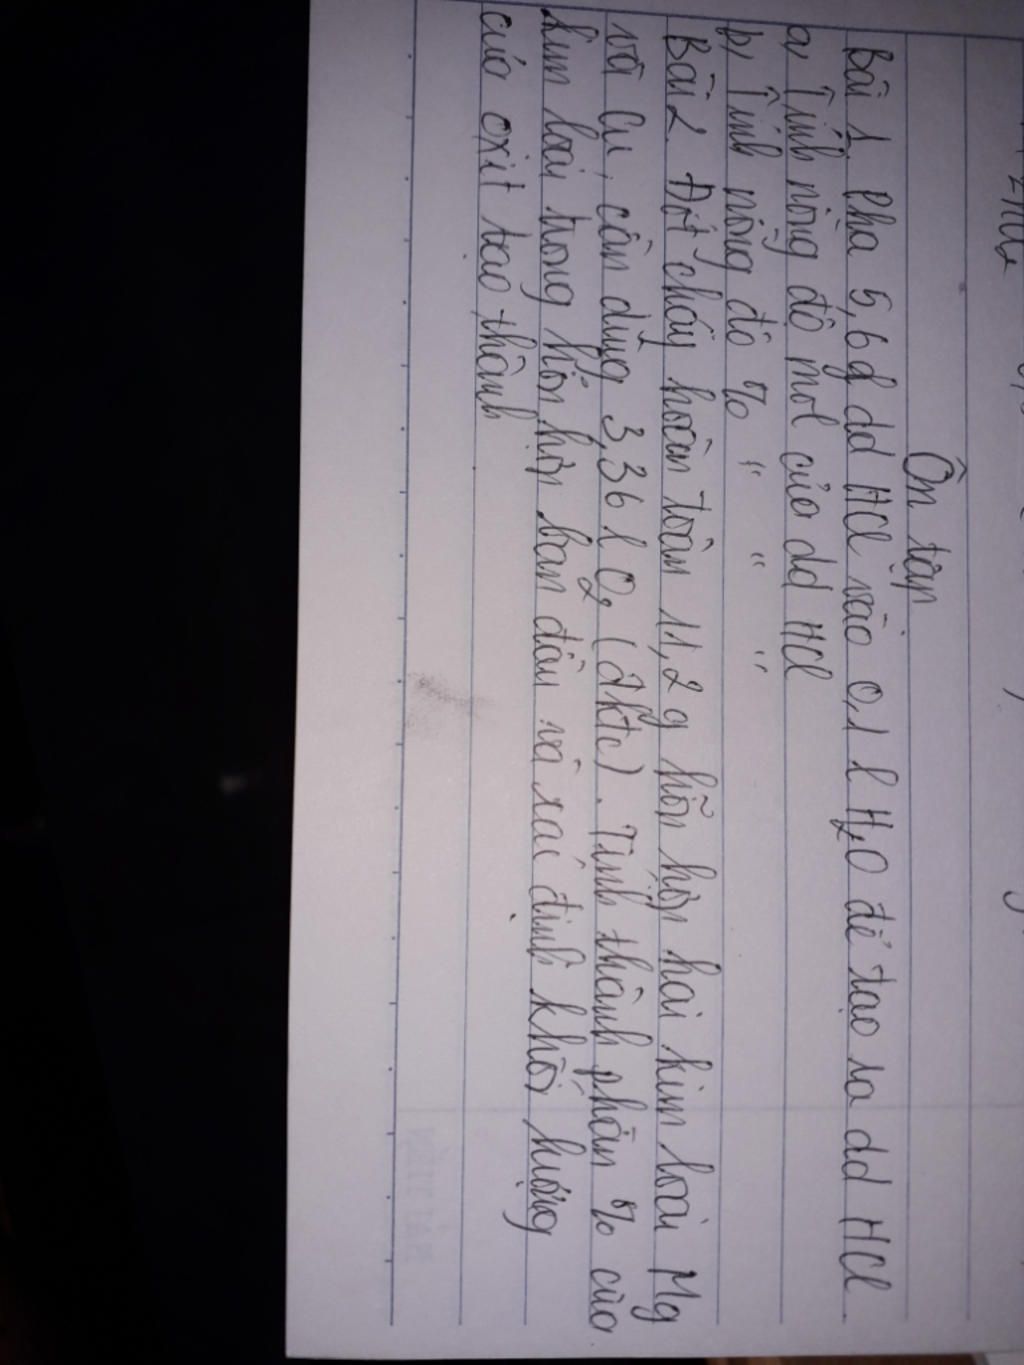 Ôn tập
Bài 1. Pha 5,6g dd HCl vào 0,1 l H₂O để tạo ra dd HCl.
a, Tính nồng độ mol của dd HCl
b, Tính nồng độ % " " "
Bài 2. Đốt cháy hoàn toàn 11,2 g hỗn hợp hai kim loại Mg
và Cu, cần dùng 3,36 l O₂ (đktc). Tính thành phần % của
kim loại trong hỗn hợp ban đầu và xác định khối lượng
của oxit tạo thành